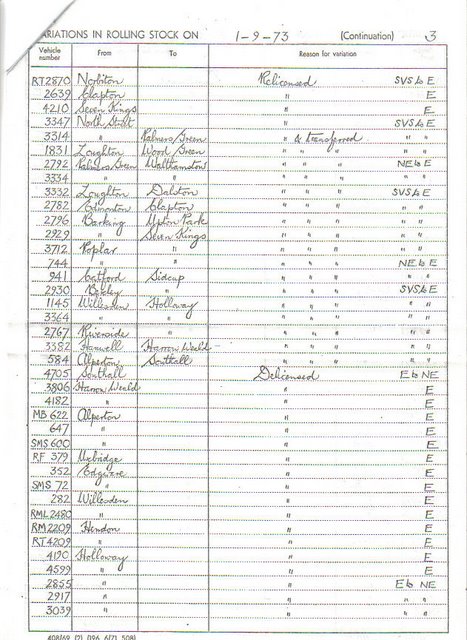 VARIATIONS IN ROLLING STOCK ON 1-9-73 (Continuation) 3
Vehicle number From To Reason for variation
RT2870 Norbiton Relicensed SVS to E
2639 Clapton " E
4210 Seven Kings " E
3347 North Street " SVS to E
3314 " Palmers Green " & transferred " "
1831 Loughton Wood Green " " " " "
2792 Palmers Green Walthamstow " " " NE to E
3334 " " " " " " "
3332 Loughton Dalston " " " SVS to E
2782 Edmonton Clapton " " " " "
2796 Barking Upton Park " " " " "
2929 " Seven Kings " " " " "
3712 Poplar " " " " " "
744 " " " " " NE to E
941 Catford Sidcup " " " " "
2930 Bexley " " " " SVS to E
1145 Willesden Holloway " " " " "
3364 " " " " " " "
2767 Riverside " " " " " "
3382 Hanwell Harrow Weald " " " " "
584 Alperton Southall " " " " "
4705 Southall Delicensed E to NE
3806 Harrow Weald " E
4182 " " E
MB 622 Alperton " E
647 " " E
SMS 600 " " E
RF 379 Uxbridge " E
352 Edgware " E
SMS 72 " " E
282 Willesden " E
RML 2480 " " E
RM 2209 Hendon " E
RT 4209 " " E
4190 Holloway " E
4599 " " E
2855 " " E to NE
2917 " " " "
3039 " " " "